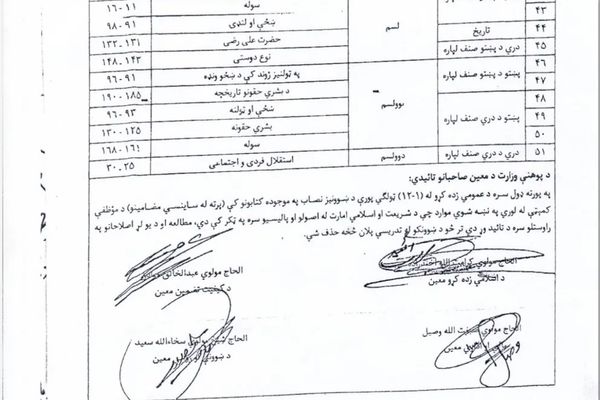 سوله ۱۱-۱۶
۴۳ ښځې او لنډۍ ۹۱-۹۸
۴۴ تاریخ لسم حضرت علی رضی ۱۳۱-۱۳۲
۴۵ دري د پښتو صنف لپاره نوع دوستی ۱۴۳-۱۴۸
۴۶ پښتو د پښتو صنف لپاره په ټولنیز ژوند کې د ښځو ونډه ۹۱-۹۶
۴۷ د بشري حقونو تاریخچه ۱۸۵-۱۹۰
۴۸ پښتو د دري صنف لپاره یوولسم ښځې او ټولنه ۹۳-۹۶
۴۹ بشري حقونه ۱۲۵-۱۳۰
۵۰ سوله ۱۶۸
۵۱ دري د دري صنف لپاره دوولسم استقلال فردی و اجتماعی ۲۵-۳۰
د پوهنې وزارت د معین صاحبانو تائیدي:
په پورته ډول سره د عمومي زده کړو له (۱-۱۲) ټولګي پورې د ښوونیز نصاب په موجوده کتابونو کې (پرته له ساینسي مضامینو) د مؤظفي
کمېټې له لورې په نښه شوي موارد چې د شریعت او اسلامي امارت له اصولو او پالیسیو سره په ټکر کې دي، مطالعه او د یو لړ اصلاحاتو په
راوستلو سره د تائید وړ دي تر څو د ښوونکو له تدریسي پلان څخه حذف شي.
الحاج مولوي کرامت الله
د اسلامي زده کړو معین
الحاج مولوي عبدالخالق
د کیفیت تضمین معین
الحاج مولوي صبغت الله وصیل
معین
الحاج مولوي سخاءالله سعید
د ښوونې معین